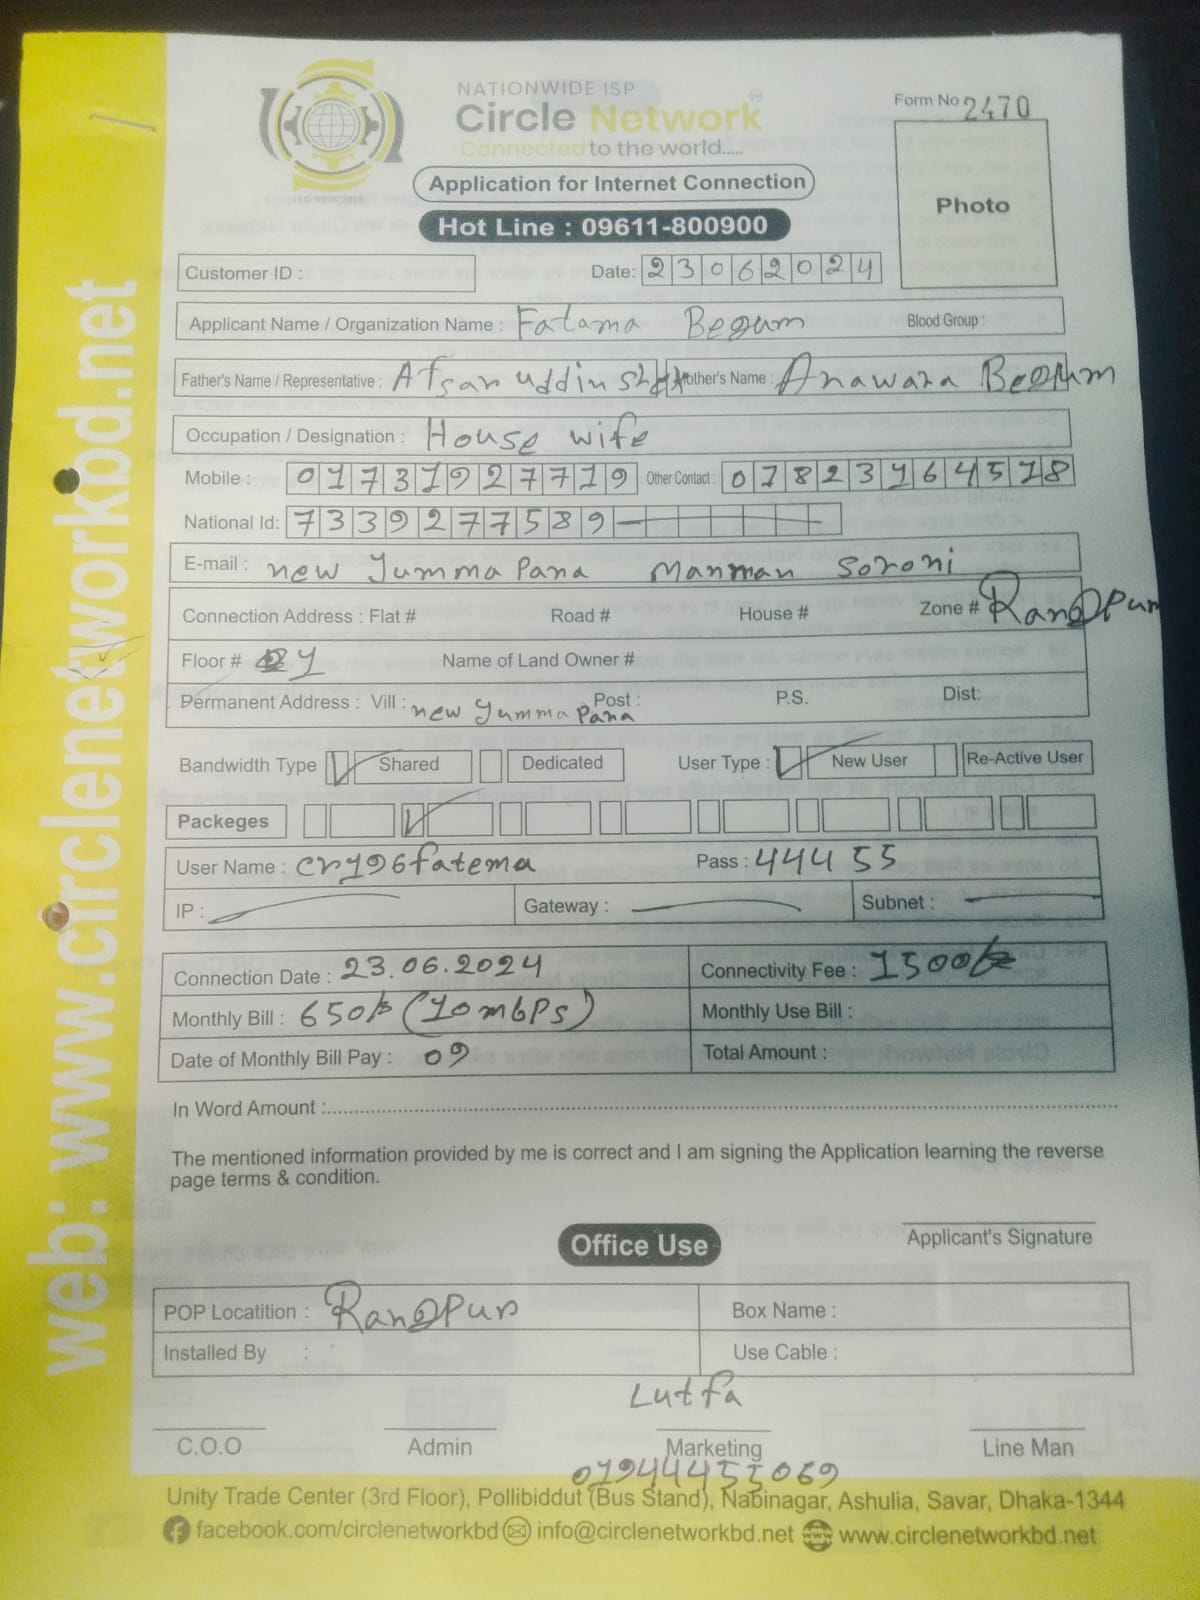 NATIONWIDE ISP
Circle Network
Connected to the world.....
ISO 9001:2015
Form No 2470
Application for Internet Connection
Hot Line : 09611-800900
Photo
Customer ID :
Date: 23062024
Applicant Name / Organization Name : Fatama Begum Blood Group :
Father's Name / Representative : Afsar uddin Mother's Name : Anawara Begum
Occupation / Designation : House wife
Mobile : 01731927719 Other Contact : 01823164518
National Id: 7339277589
E-mail : new Jumma Para Manman soroni
Connection Address : Flat # Road # House # Zone # Rangpur
Floor # Name of Land Owner #
Permanent Address : Vill : new Jumma Para Post : P.S. Dist:
Bandwidth Type Shared Dedicated User Type : New User Re-Active User
Packeges
User Name : cr196fatema Pass : 44455
IP : Gateway : Subnet :
Connection Date : 23.06.2024 Connectivity Fee : 1500/=
Monthly Bill : 650/= (10mbps) Monthly Use Bill :
Date of Monthly Bill Pay : 09 Total Amount :
In Word Amount :
The mentioned information provided by me is correct and I am signing the Application learning the reverse
page terms & condition.
Applicant's Signature
Office Use
POP Locatition : Rangpur Box Name :
Installed By : Use Cable :
Lutfa
C.O.O Admin Marketing Line Man
01944455069
Unity Trade Center (3rd Floor), Pollibiddut (Bus Stand), Nabinagar, Ashulia, Savar, Dhaka-1344
facebook.com/circlenetworkbd info@circlenetworkbd.net www.circlenetworkbd.net
web: www.circlenetworkbd.net